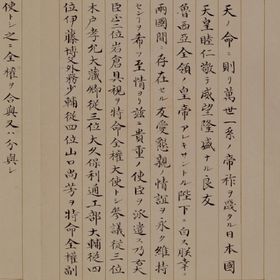 天ノ命ニ則リ萬世一系ノ帝祚ヲ踐タル日本國
天皇睦仁敬テ威望隆盛ナル良友
魯西亞全領ノ皇帝アレキサントル陛下ニ白ス朕幸ニ
兩國間ニ存在セル友愛懇親ノ情誼ヲ永ク維持
センヿヲ希フ至情ヨリ茲ニ貴重ノ使臣ヲ派遣ス乃
臣正二位岩倉具視ヲ特命全權大使トシ參議從三位
木戸孝允大藏卿從三位大久保利通工部大輔從四
位伊藤博文外務少輔從四位山口尚芳ヲ特命全權副
使トシ之ニ全權ヲ合與又ハ分與シ